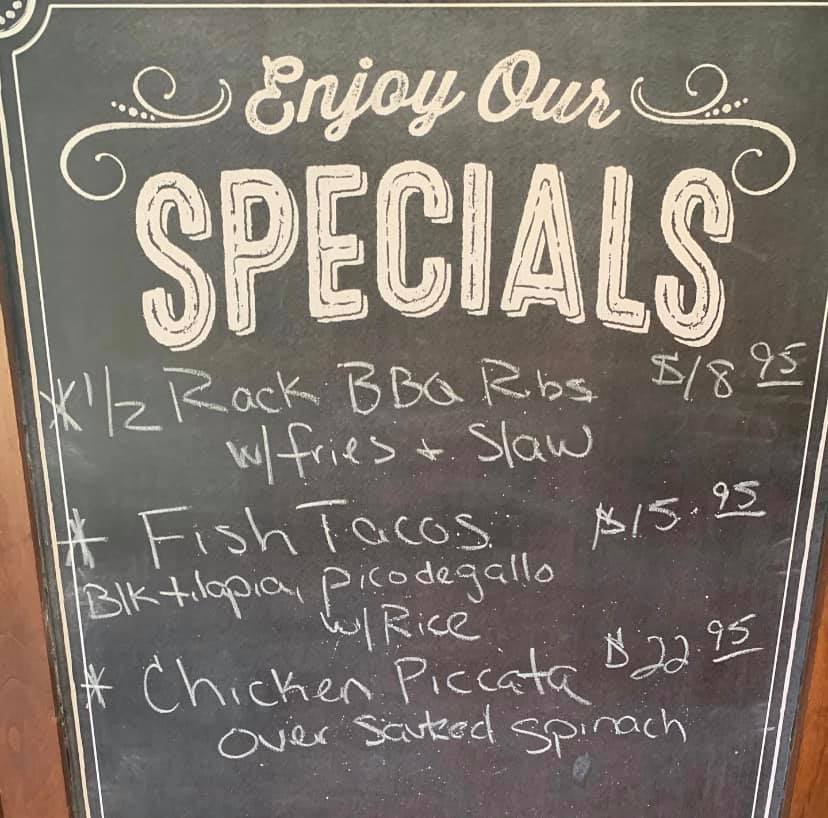 Enjoy Our
SPECIALS
* 1/2 Rack BBQ Ribs $18 95
w/ fries + Slaw
* Fish Tacos $15.95
Blk tilapia, pico degallo
w/ Rice
* Chicken Piccata $22 95
over sauteed spinach